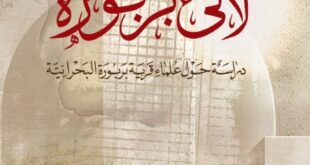 لآلئ بربورة
دراسة حول علماء قرية بربورة البحرانية